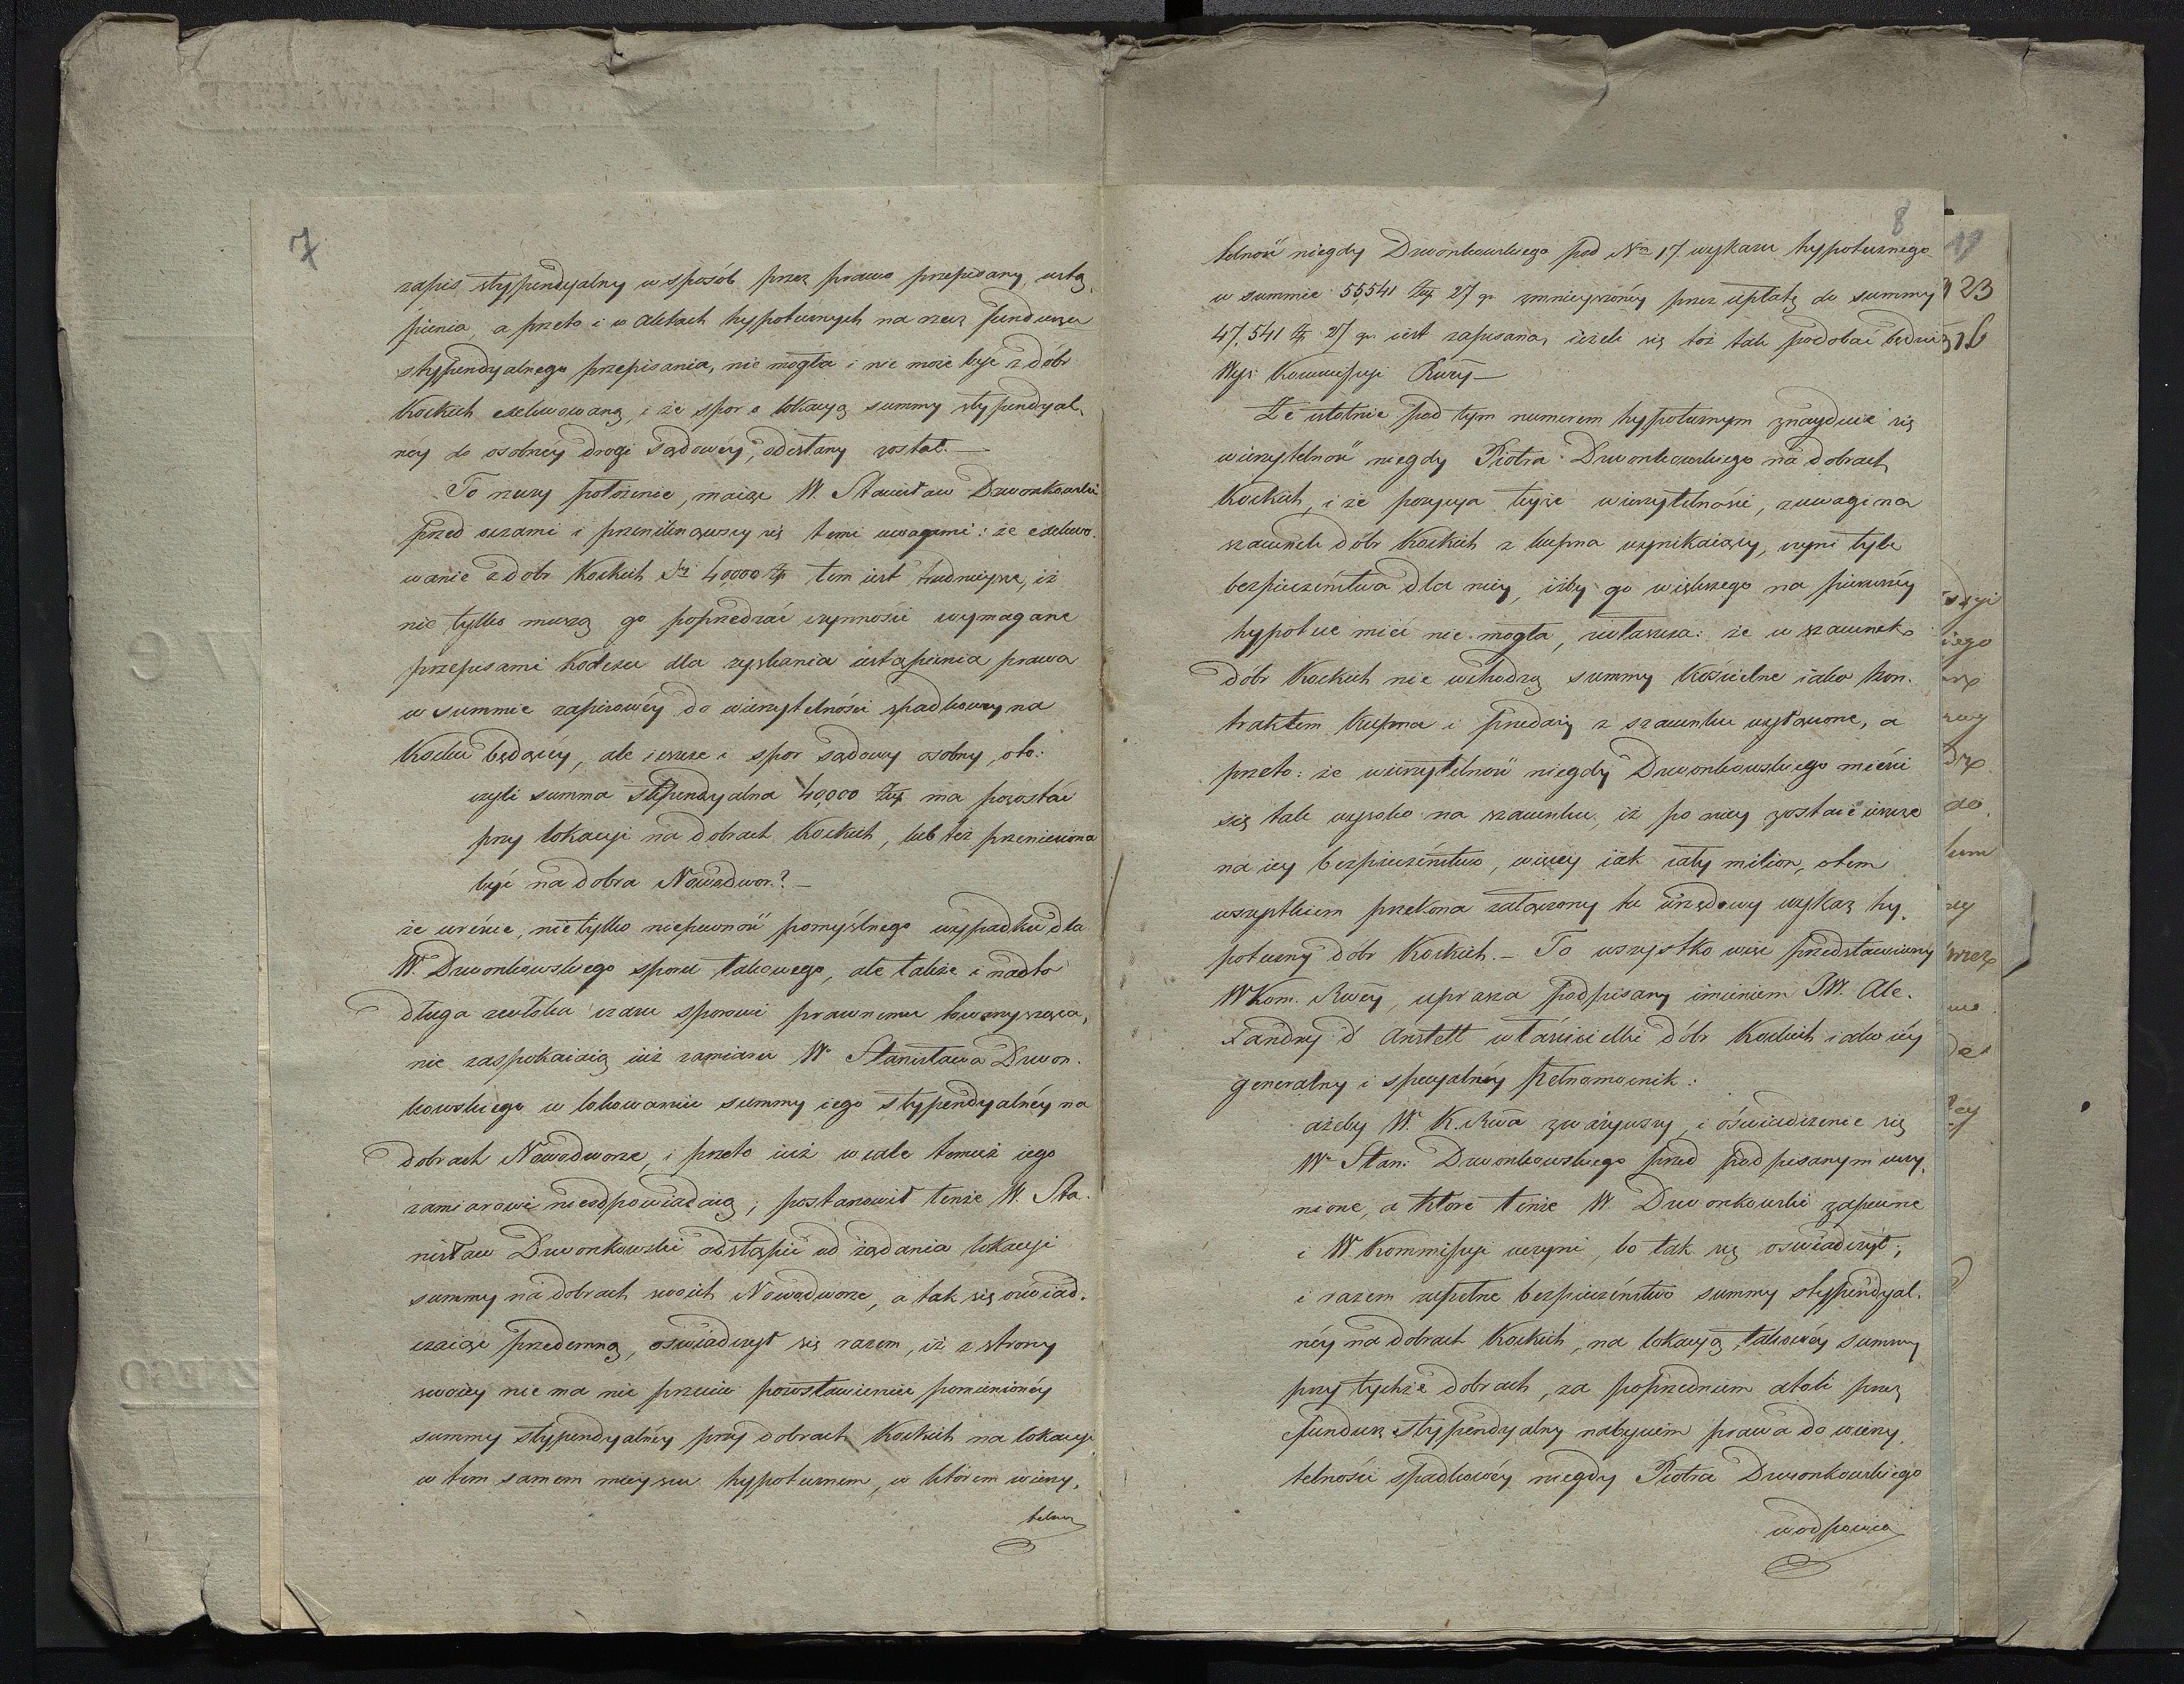 7
zapis stypendyalny w sposób przez prawo przepisany, ustą,
pienia, a przeto i w Aktach hypotecznych na rzecz funduszu
stypendyalnego przepisania, nie mogła i nie może być z dóbr
Kockich exlewowaną, i że spor o lokacyą summy stypendyal,
néy do osobnéy drogi sądowéy, odesłany został. —
To rzeczy położenie, maiąc W. Stanisław Dzwonkowski
przed oczami i przeniknąwszy się temi uwagami: że exelewo.
wanie z dóbr Kockich Sy 40,000 zp tem iest trudnieysze, iż
nie tylko muszą go poprzedzać czynności wymagane
przepisami Kodexu dla zyskania ustąpienia prawa
w summie zapisowéy do wierzytelności spadkowey na
Kocku będącéy, ale ieszcze i spor sądowy osobny, oto:
czyli summa stypendyalna 40,000 zp ma pozostać
przy lokacyi na dobrach Kockich, lub też przeniesiona
być na dobra Nowodwor.? —
że wreście, nie tylko niepewność pomyślnego wypadku dla
W. Dzwonkowskiego sporu takowego, ale także i nadto
długa zwłoka czasu sporowi prawnemu towarzysząca,
nie zaspokaiaią iuż zamiaru W. Stanisława Dzwon.
kowskiego w lokowaniu summy iego stypendyalnéy na
dobrach Nowodworze, i przeto iuż wcale temuż iego
zamiarowi nieodpowiadaią; postanowił tenże W. Sta.
nisław Dzwonkowski odstąpić od żądania lokacyi
summy na dobrach swoich Nowodworze, a tak się oświad.
czaiąc przedemną, oświadczył się razem, iż z strony
swoiéy nie ma nic przeciw pozostawieniu pomienionéy
summy stypendyalnéy przy dobrach Kockich na lokacyi
w tem samem mieyscu hypotecznem, w którem wierzy,
telność
8
telność niegdy Dzwonkowskiego pod No 17. wykazu hypotecznego
w summie 55,541 zp 27 gr. zmnieyszonéy przez upłatę do summy
47,541 zp 27 gr. iest zapisana, ieżeli się toż tak podobać będzie
Wys: Kommissyi Rzą—
Że istotnie pod tym numerem hypotecznym znayduie się
wierzytelność niegdy Piotra Dzwonkowskiego na dobrach
Kockich, i że pozycya teyże wierzytelności, z uwagi na
szacunek dóbr Kockich z kupna wynikaiący, czyni tyle
bezpieczeństwa dla niey, iżby go większego na pierwszéy
hypotece mieć nie mogła, zwłaszcza: że w szacunek
dóbr Kockich nie wchodzą summy kościelne iako kon.
traktem kupna i przedaży z szacunku wyłączone, a
przeto: że wierzytelność niegdy Dzwonkowskiego mieści
się tak wysoko na szacunku, iż po niey zostaie ieszcze
na iey bezpieczeństwo, więcéy iak cały milion, o tem
wszystkiem przekona załączony tu urzędowy wykaz hy,
poteczny dóbr Kockich. — To wszystko więc przedstawiwszy
W Kom. Rzéy, uprasza podpisany imieniem JW. Ale.
xandry d'Anstett właścicielki dóbr Kockich iako iéy
generalny i specyalny pełnomocnik:
ażeby W. K. Rwa zważywszy, i oświadczenie się
W Stan: Dzwonkowskiego przed podpisanym uczy,
nione, a które tenże W. Dzwonkowski zapewne
i W. Kommissyi uczyni, bo tak się oświadczył;
i razem zupełne bezpieczeństwo summy stypendyal.
néy na dobrach Kockich, na lokacyą takowéy summy
przy tychże dobrach, za poprzedniem atoli przez
fundusz stypendyalny nabyciem prawa do wierzy,
telności spadkowéy niegdy Piotra Dzwonkowskiego
w odpowie
23